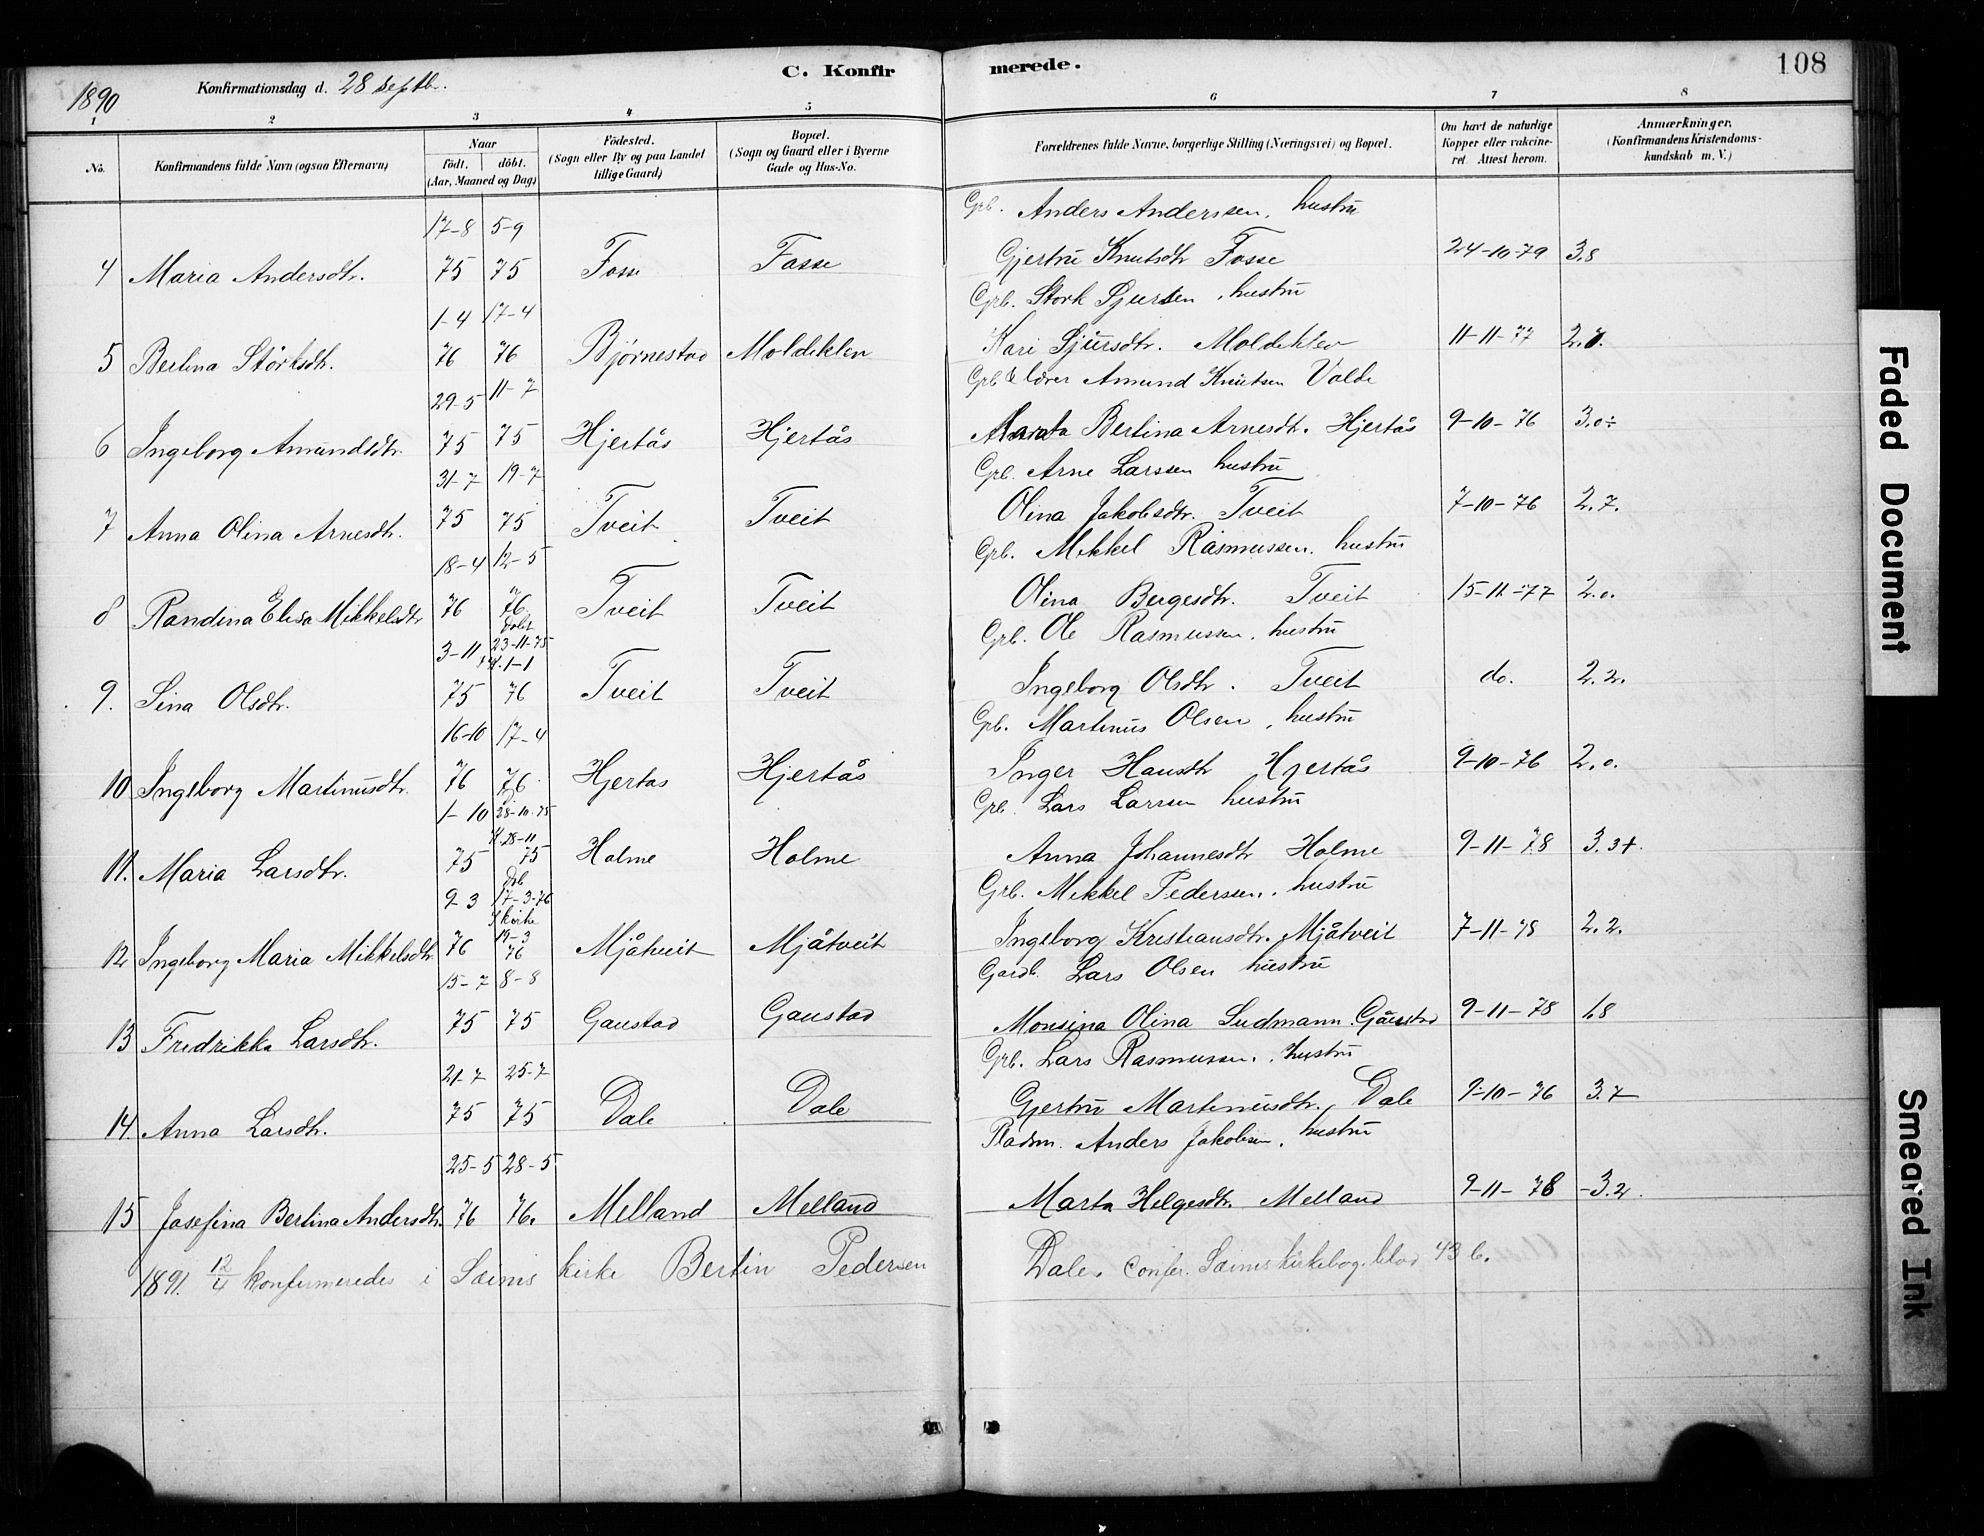 1890 Konfirmationsdag d. 28 Septb. C. Konfirmerede. 108
1 2 3 4 5 6 7 8
No. Konfirmandens fulde Navn (ogsaa Efternavn) Naar födt. döbt. (Aar, Maaned og Dag) Födested. (Sogn eller By og paa Landet tillige Gaard) Bopæl. (Sogn og Gaard eller i Byerne Gade og Hus-No. Forældrenes fulde Navne, borgerlige Stilling (Næringsvei) og Bopæl. Om havt de naturlige Kopper eller vakcineret. Attest herom. Anmærkninger. (Konfirmandens Kristendomskundskab m. V.)
17-8 5-9 Grb. Anders Anderssen, hustru
4 Maria Andersdtr. 75 75 Fosse Fosse Gjertru Knutsdtr Fosse 24-10-79 3.8
1-4 17-4 Grb. Stork Sjursen, hustru
5 Berlina Störksdtr. 76 76 Björnestad Moldeklev Kari Sjursdtr. Moldeklev 11-11-77 2.0.
29-5 11-7 Grb & lærer Amund Knutsen Valde
6 Ingeborg Amundsdtr. 75 75 Hjertås Hjertås Marta Bertina Arnesdtr. Hjertås 9-10-76 3.0÷
31-7 19-7 Grb. Arne Larssen hustru
7 Anna Olina Arnesdtr. 75 75 Tveit Tveit Olina Jakobsdtr. Tveit 7-10-76 2.7.
18-4 12-5 Grb. Mikkel Rasmussen. hustru
8 Randina Elisa Mikkelsdtr 76 76 Tveit Tveit Olina Bergesdtr. Tveit 15-11-77 2.0.
3-11 23-11-75 1-1 Grb. Ole Rasmussen, hustru
9. Sina Olsdtr. 75 76 Tveit Tveit Ingeborg Olsdtr. Tveit do. 2.2.
16-10 17-4 Grb. Martinus Olsen, hustru
10 Ingeborg Martinusdtr. 76 76 Hjertas Hjertås Inger Hansdtr Hjertås 9-10-76 2.0.
1-10 28-10-75 28-11 Grb. Lars Larsen hustru
11. Maria Larsdtr. 75 75 Holme Holme Anna Johannesdtr Holme 9-11-78 3.3+.
9-3 17-3-76 Kirke 19-3 Grb. Mikkel Pedersen, hustru
12 Ingeborg Maria Mikkelsdtr 76 76 Mjåtveit Mjåtveit Ingeborg Kristiansdtr. Mjåtveit 7-11-78 2.2.
15-7 8-8 Gardb. Lars Olsen hustru
13 Fredrikka Larsdtr. 75 75 Gaustad Gaustad Monsina Olina Sudmann Gaustad 9-11-78 1.8
21-7 25-7 Grb. Lars Rasmussen, hustru
14. Anna Larsdtr. 75 75 Dale Dale Gjertru Martinusdtr. Dale 9-10-76 3.7
25-5 28-5 Pladsm. Anders Jakobsen, hustru
15 Josefina Berlina Andersdtr. 76 76. Melland Melland Marta Helgesdtr. Melland 9-11-78 -3.2.
1891 12/4 konfirmeredes i Sæims kirke Bertin Pedersen Dale. Confer. Sæims kirkebog blad 43 b.
Faded Document
Smeared Ink